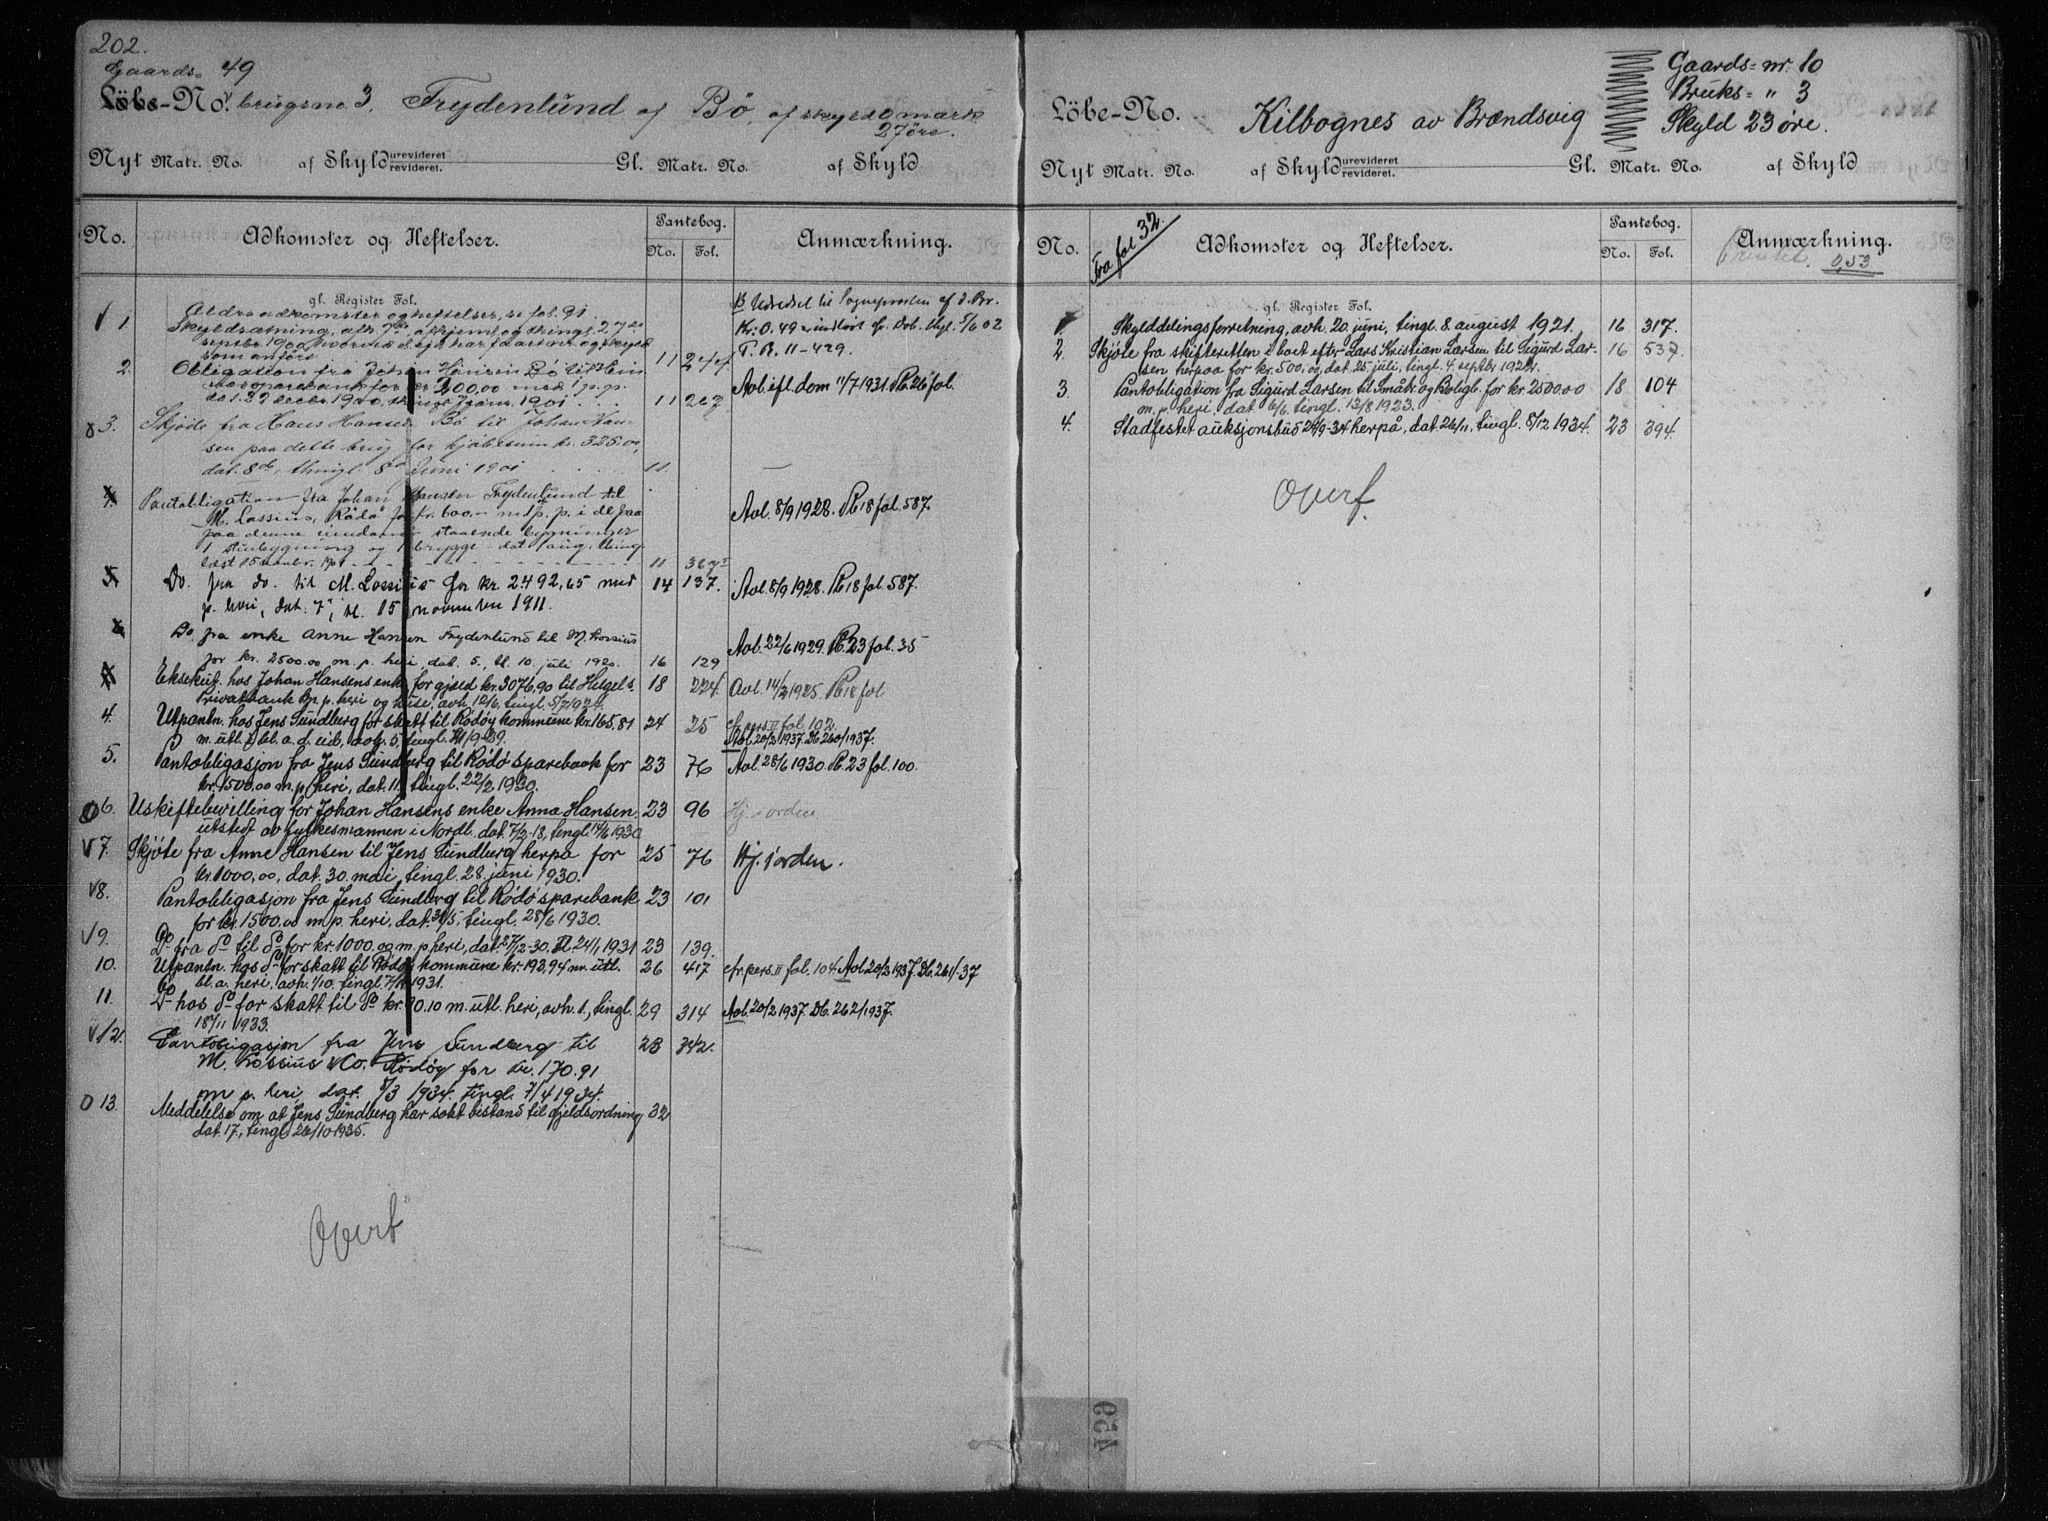 202.
Gaards= 49
Löbe-No. brugsno. 3. Frydenlund af Bö, af skyld 0 mark
27 öre.
Nyt Matr. No. af Skyld urevideret revideret. Gl. Matr. No. af Skyld
No. Adkomster og Heftelser. Pantebog. No. Fol. Anmærkning.
gl. Register Fol.
Ældre adkomster og heftelser, se fol. 91.
V 1 Skyldsætning, afh. 7de og tingl. 27de
septbr. 1900
som anfört 11 244
Udredsel til Sognepresten af d. Br.
Kr. 0.49 indlöst cfr. Dok. tingl. 5/6 02
P. B. 11-429.
2. Obligation fra Johan Hansen Bö til
sparebank for kr 200,00 med 1. p. p.
dat. 22 decbr. 1900, 1901 11 267
Avl. efl. dom 11/7 1931 Pb. 26 fol.
3. Skjöde fra Hans Hansen Bö til Johan Han-
sen paa dette brug for kjöbesum kr. 325.00,
dat. 8de, thingl. 8de Juni 1901 11.
4. Pantobligation fra Johan Hansen Frydenlund til
M. Lossius, Rödö for kr. 600.- med p. p. i de paa
paa denne eiendom staaende bygninger
1 stubygning og 1 brygge dat 1 aug., thing
læst 15 1901 11 367
Avl. 8/9 1928. Pb 18 fol. 587.
5. Do. fra do. til M. Lossius for kr. 2492,65 med 14 137.
p. heri, dat. 7, tl. 15 november 1911.
Avl. 8/9 1928. Pb 18 fol. 587.
6. Do. fra enke Anne Hansen Frydenlund til M. Lossius
for kr. 2500.00 m. p. heri, dat. 5., tl. 10. juli 1920. 16 129
Avl. 22/6 1929. Pb. 23 fol. 35
Eksekut. hos Johan Hansens enke for gjæld kr. 3076,90 til Helgel.s 18 224
Privatbank m. p. heri og huse, avh. 12/6, tingl. 5/7 1924.
Avl. 14/2 1925 Pb 18 fol
4. Utpantn. hos Jens Sundberg for skatt til Rödöy kommune kr. 165,81 24 25
m. utl. i bl. a. d. eid., avh. 5, tingl. 21/9-29.
cfr pers II fol. 102
Avl. 20/2 1937. Db. 260/1937.
5. Pantobligasjon fra Jens Sundberg til Rödö sparebank for 23 76
kr. 1500.00 m. p. heri, dat. 11, tingl. 22/2 1930.
Avl. 28/6 1930 Pb. 23 fol. 100.
O 6. Uskiftebevilling for Johan Hansens enke Anna Hansen, 23 96 Hj. i orden
utstedt av fylkesmannen i Nordl. dat. 7/2-18, tingl. 14/6 1930
V 7. Skjöte fra Anne Hansen til Jens Sundberg herpa for 25 76 Hj. i orden.
kr. 1000,00, dat. 30. mai, tingl. 28. juni 1930.
V 8. Pantobligasjon fra Jens Sundberg til Rödö sparebank 23 101
for kr. 1500.00 m. p. heri, dat. 31/5, tingl. 28/6 1930.
V 9. Do fra do til do for kr. 1000.00 m. p. heri, dat. 27/12-30. Tl. 24/1 1931 23 139.
10. Utpantn. hos do for skatt til Rödöy kommune kr. 193,94 m. utl. 26 417 cfr pers II fol. 104 Avl. 20/2 1937. Db. 261/37
i bl. a. heri, avh. 1/10, tingl. 7/11 1931.
11. Do hos do for skatt til do kr. 90.10 m. utl. heri, avh. 1., tingl. 29 314 Avl. 20/2 1937. Db. 262/1937.
18/11 1933.
V 12. Pantobligasjon fra Jens Sundberg til 23 342.
M. Lossius & Co. Rödöy for kr. 170.91
m p. heri dat. 5/3 1934. tingl. 7/4 1934.
O 13. Meddelelse om at Jens Sundberg har sökt bistand til gjeldsordning 32
dat. 17., tingl. 26/10 1935.
Overf
Löbe-No. Kilbognes av Brændsvig
Gaards= nr. 10
Bruks= " 3
Skyld 23 öre.
Nyt Matr. No. af Skyld urevideret revideret. Gl. Matr. No. af Skyld
No. Fra fol 32. Adkomster og Heftelser. Pantebog. No. Fol. Anmærkning.
0,53
gl. Register Fol.
1. Skylddelingsforretning, avh. 20. juni, tingl. 8. august 1921. 16 317.
2. Skjöte fra skifteretten i boet efter Lars Kristian Larsen til Sigurd Lar- 16 537.
sen herpaa for kr. 500,00, dat. 25. juli, tingl. 4. septbr 1922.
3. Pantobligation fra Sigurd Larsen til Småbr og Boligb. for kr. 2500.00 18 104
m. p. heri, dat. 6/6, tingl. 13/8 1923.
4. Stadfestet auksjonsbud 24/9-34 herpå, dat. 26/11, tingl. 8/12 1934. 23 394.
Overf.
654